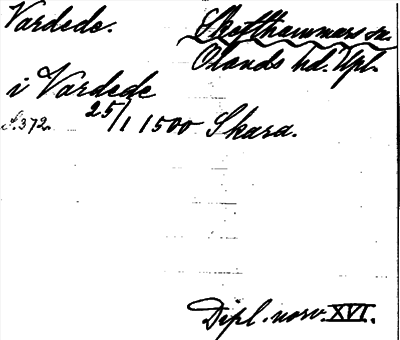 Vardede. Skefthammars sn.
Olands hd. Upl.
i Vardede
S. 372. 25/1 1500 Skara.
Dipl. norv. XVI.